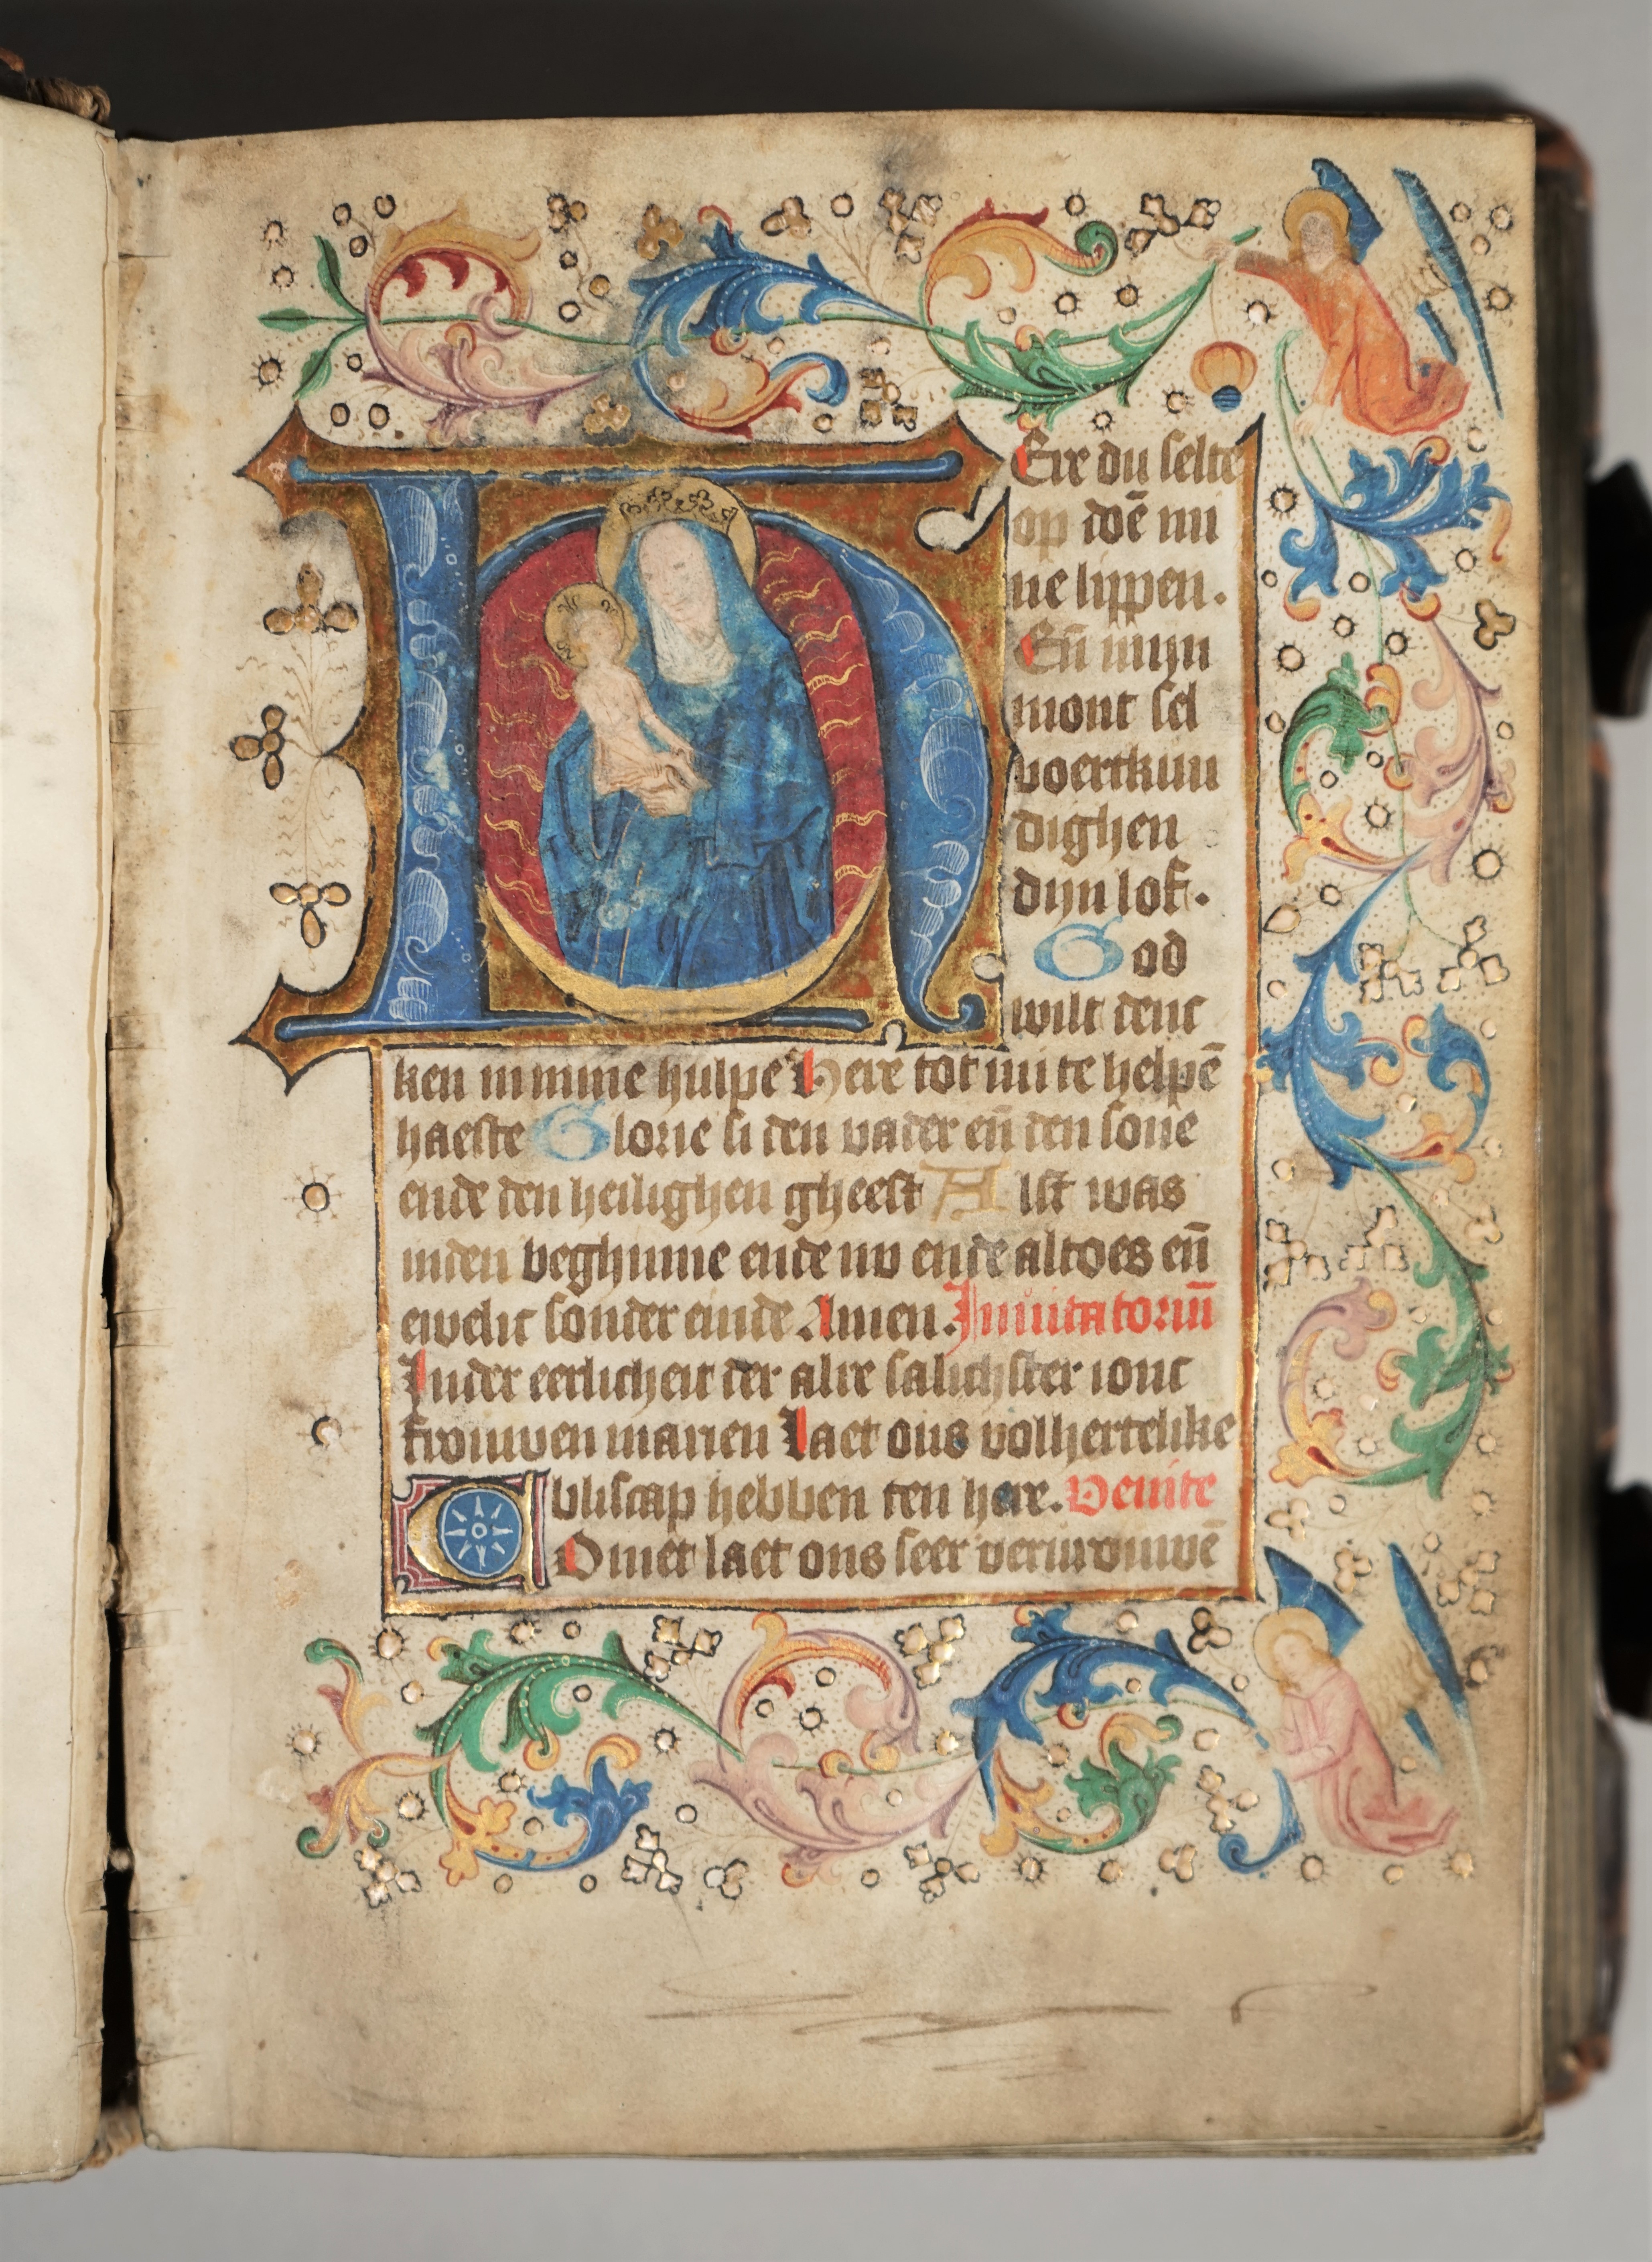 HEre du selte
op doē mi
ne lippen.
Eñ mijn
mont sel
voertkun
dighen
dijn lof.
God
wilt denc
ken in mine hulpe Here tot mi te helpē
haeste Glorie si den vader eñ den sone
ende den heilighen gheest Alst was
inden beghinne ende nv ende altoes eñ
ewelic sonder einde Amen. Inuitatoriū
Inder eerlicheit der alre salichster ionc
frouwen marien Laet ons volhertelike
bliscap hebben ten here. Venite
COmet laet ons seer vervrouwē